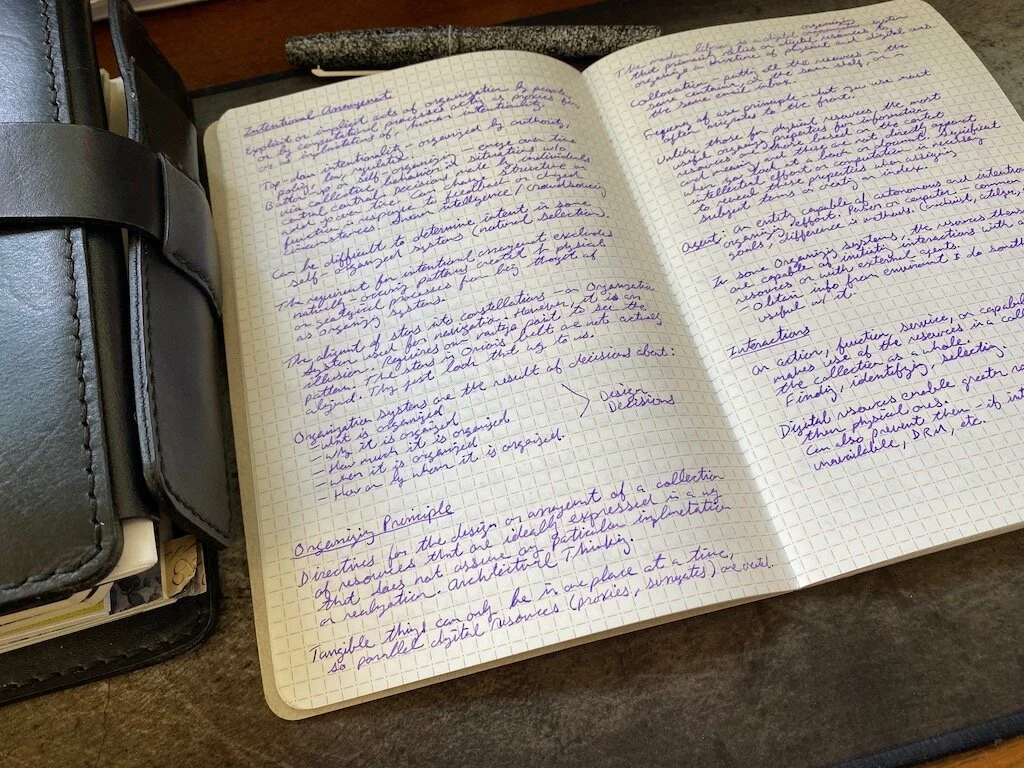 Intentional Arrangement
Explicit or implicit acts of organization by people
or by computational processes acting as proxies for,
or as implementations of, human intentionality.
Top down intentionality - organized by authority,
policy, law, regulation.
Bottom-up or self-organizing - emerge over time
via collective behavior in situations w/o
central control. Decisions made by individuals
over time then change structure or
function in response to feedback or changed
circumstances. Swarm intelligence / crowdsourcing
Can be difficult to determine intent in some
self-organized systems (natural selection).
The requirement for intentional arrangement excludes
naturally-occurring patterns created by physical
or geological processes from being thought of
as organizing systems.
The alignment of stars into constellations - an Organization
system used for navigation. However, it is an
illusion. Requires our vantage point to see the
pattern. The stars in Orion's belt are not actually
aligned. They just look that way to us.
Organization systems are the result of decisions about:
- what is organized
- why it is organized
- How much it is organized
- when it is organized
- How or by whom it is organized.
Design
Decisions
Organizing Principle
Directives for the design or arrangement of a collection
of resources that are ideally expressed in a way
that does not assume any particular implementation
or realization. Architectural Thinking.
Tangible things can only be in one place at a time,
so parallel digital resources (proxies, surrogates) are
The modern library is a organizing system
that primarily relies on digital resources to
organize a mixture of physical and digital ones
Collocation - putting all the resources in the
same container, the same shelf, or in
the same email inbox.
Frequency of use principle - what you use most
often migrates to the front.
Unlike those for physical resources, the most
useful organizing properties for information
resources are those based on the content
and meaning, and these are not directly apparent
when you look at a book or document. Significant
intellectual effort or computation is necessary
to reveal these properties when assigning
subject terms or creating an index.
Agent: An entity capable of autonomous and intentional
organizing effort. Person or computer -
goals, difference in
In some Organizing systems, the resources those
are capable of initiating interactions with o
resources or with external agents.
- Obtain info from environment & do someth
useful w/ it.
Interactions
An action, function, service, or capabil
makes use of the resources in a colle
the collection as a whole.
Finding, identifying, selecting
Digital resources enable greater
than physical ones.
Can also prevent them - if int
unavailable, DRM, etc.